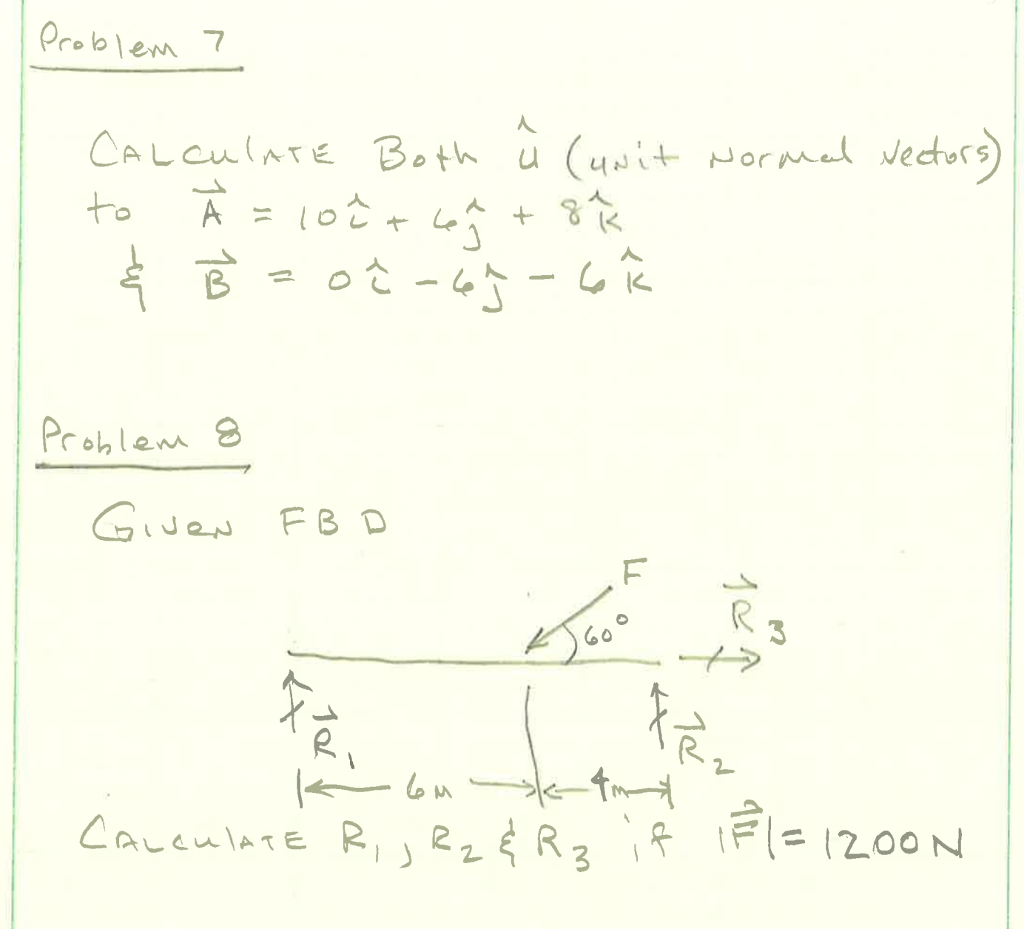 Problem 7
CALCULATE Both û (unit Normal vectors)
to A⃗ = 10î + 6ĵ + 8k̂
& B⃗ = 0î - 6ĵ - 6k̂
Problem 8
GIVEN FBD
F
60°
R⃗3
R⃗1
R⃗2
6m 4m
CALCULATE R1, R2 & R3 if |F⃗| = 1200N